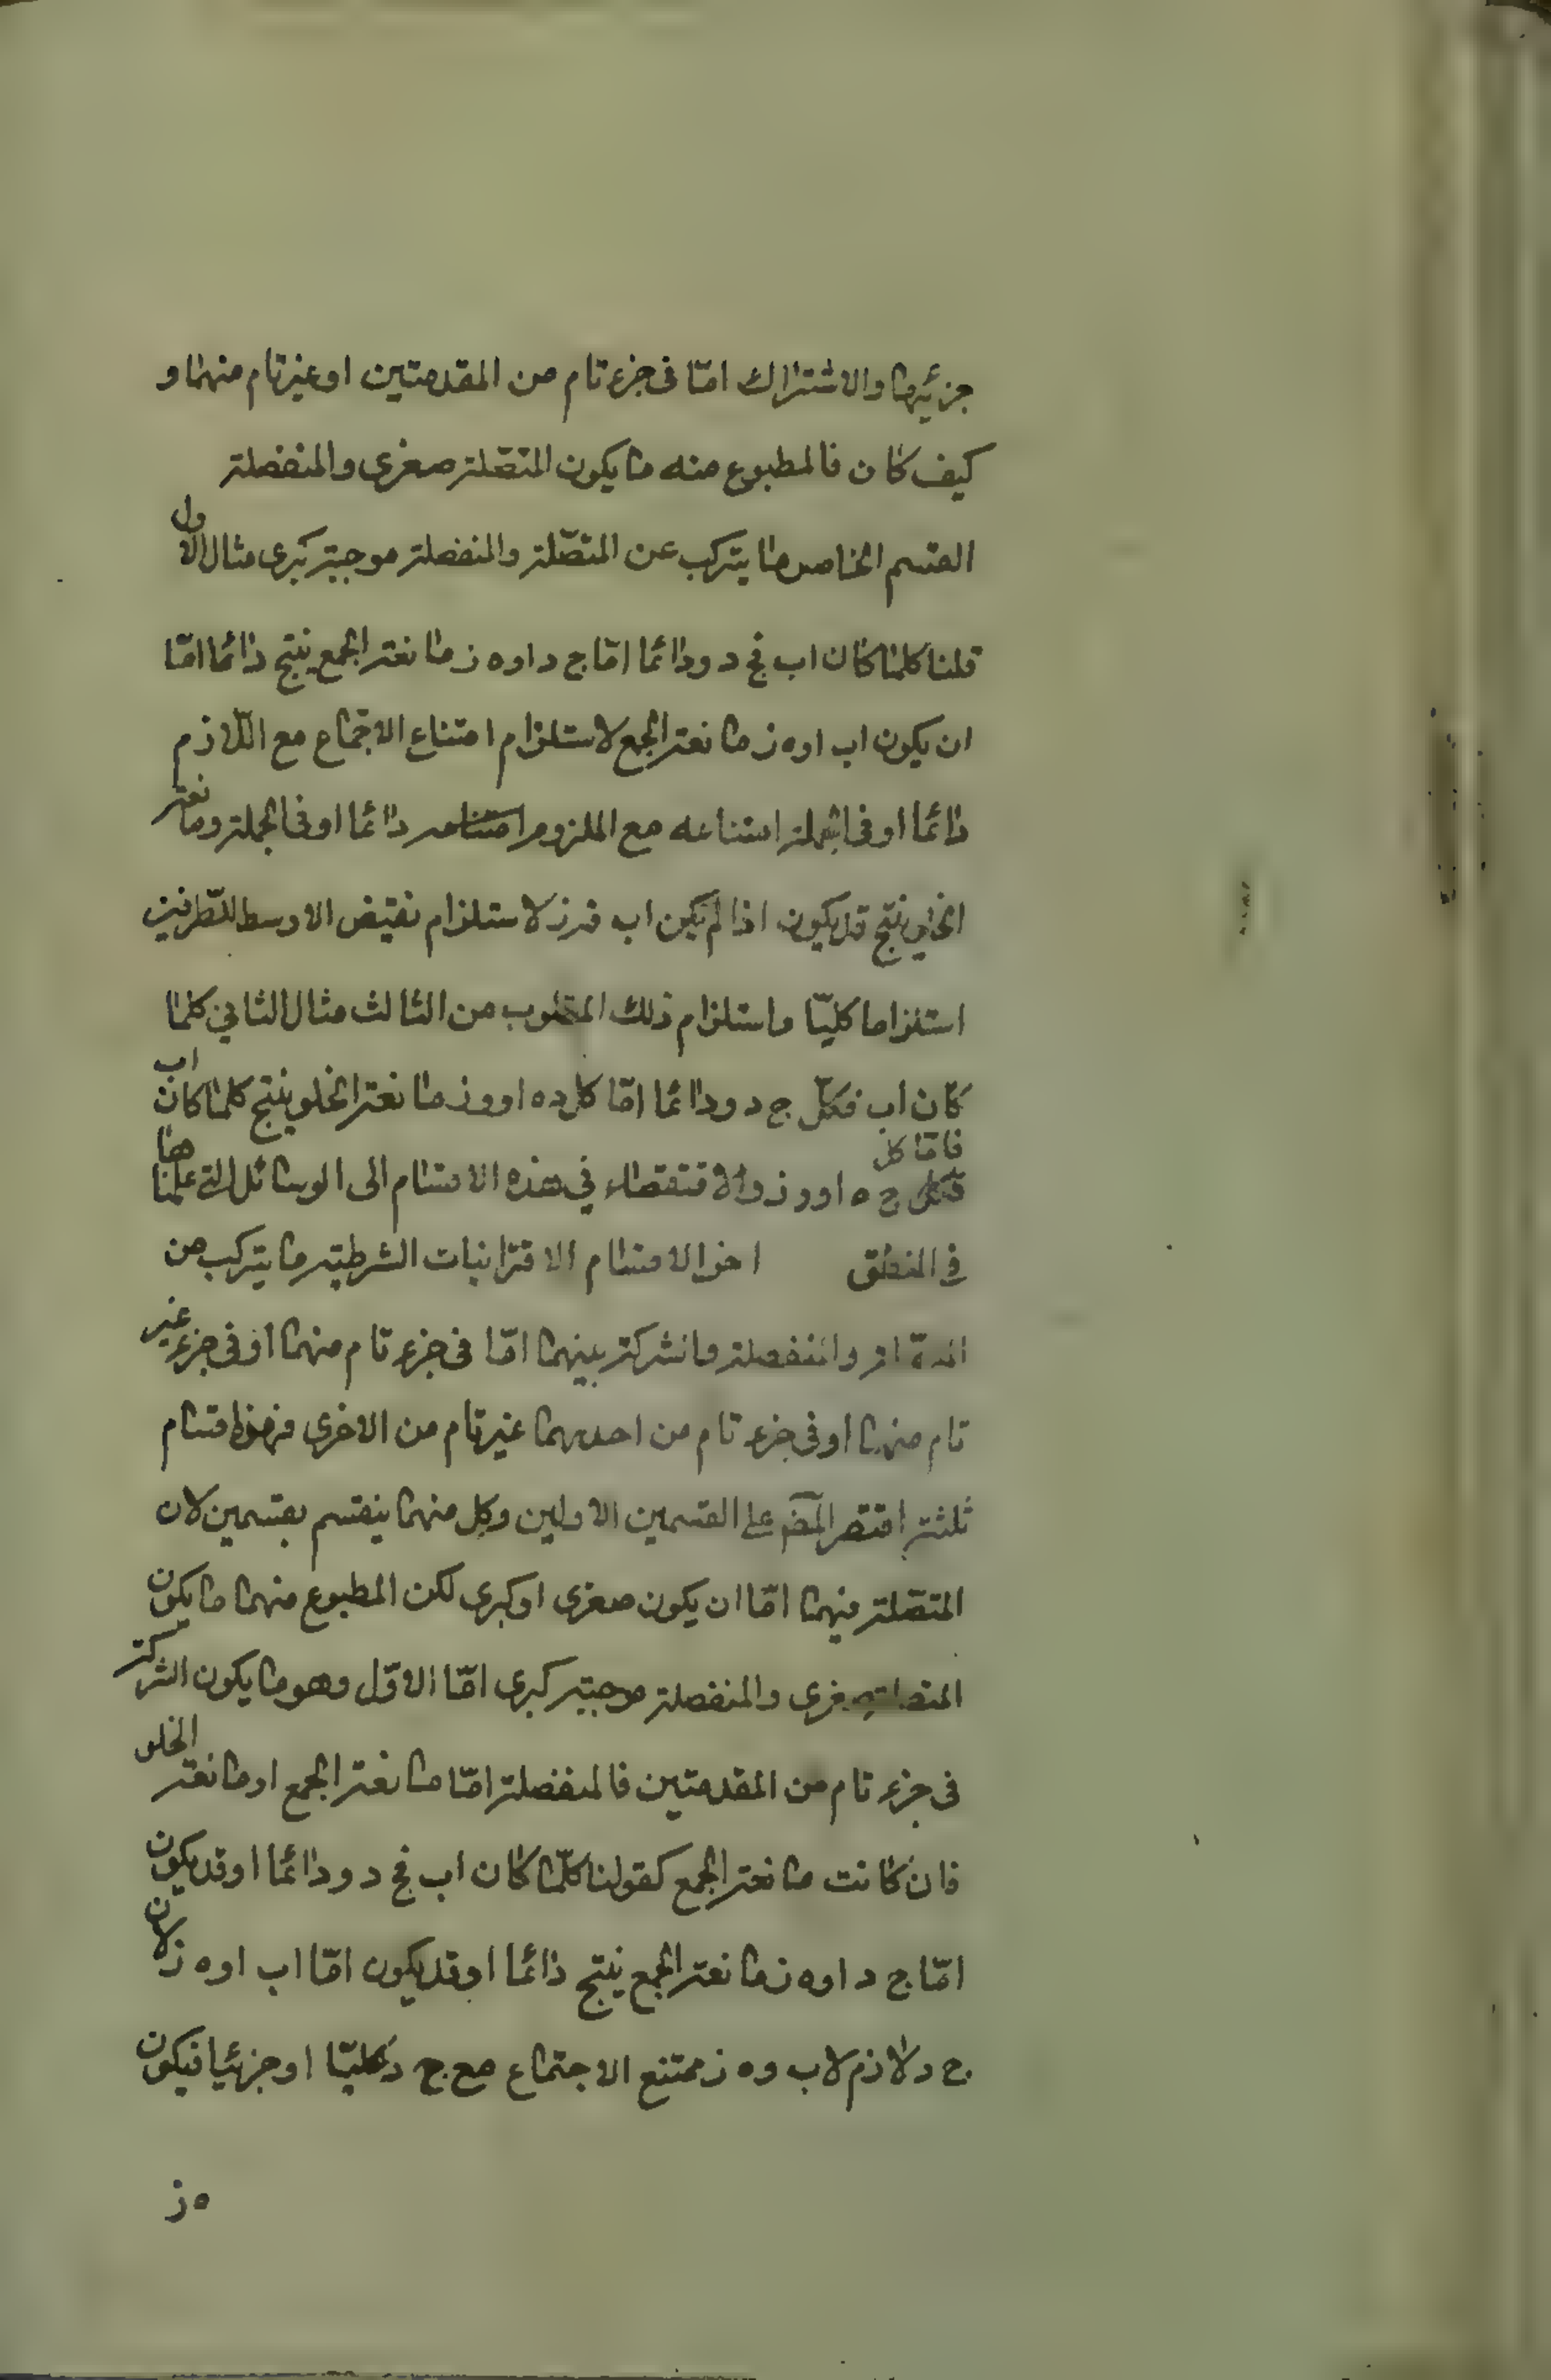 جزئيهما والاشتراك امّا فى جزء تام من المقدمتين او غير تام منهما و
كيف كان فالمطبوع منه ما يكون المتصّلة صغرى والمنفصلة
القسم الخامس ما يتركب عن المتصّلة والمنفصلة موجبة كبرى مثال الاول
قلنا كلما كان اب فج د ودائما امّا ج د او ه ز مانعة الجمع ينتج دائما امّا
ان يكون اب او ه ز مانعة الجمع لاستلزام امتناع الاجتماع مع اللّازم
دائما او فى الجملة امتناعه مع الملزوم دائما او فى الجملة ومانعة
الخلو ينتج قد يكون اذا لم يكن اب فه ز لاستلزام نقيض الاوسط للطّرفين
استلزاما كليّا واستلزام ذلك المطلوب من الثالث مثال الثانى كلما
كان اب فكلّ ج د ودائما امّا كل د ه او و ز مانعة الخلو ينتج كلما كان اب
فامّا كل ج ه او و ز والاستقصاء في هذه الاقسام الى الرسائل التى عملناها
فى المنطق اخر الاقسام الاقترانيات الشرطية ما يتركب من
المتصّلة والمنفصلة والشركة بينهما امّا فى جزء تام منهما او فى جزء غير
تام منهما او فى جزء تام من احديهما غير تام من الاخرى فهذه اقسام
ثلثة اقتصر المصّ على القسمين الاولين وكل منهما ينقسم بقسمين لان
المتصّلة فيهما امّا ان يكون صغرى او كبرى لكن المطبوع منهما ما يكون
المتصلة صغرى والمنفصلة موجبة كبرى امّا الاوّل وهو ما يكون الشركة
فى جزء تام من المقدمتين فالمنفصلة امّا مانعة الجمع او مانعة الخلو
فان كانت مانعة الجمع كقولنا كلّما كان اب فج د ودائما او قد يكون
امّا ج د او ه ز مانعة الجمع ينتج دائما او قد يكون امّا اب او ه ز لانّ
ج د لازم لاب و ه ز ممتنع الاجتماع مع ج د كليّا او جزئيا فيكون
ه ز